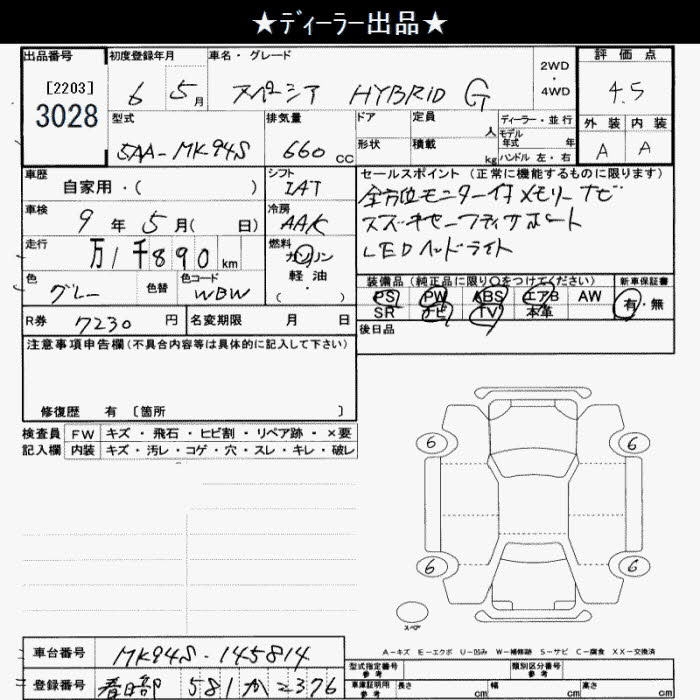 ★ディーラー出品★
出品番号 初度登録年月 車名・グレード 2WD・4WD 評価点
[2203]
3028
6 5月 スペーシア HYBRID G 4.5
型式 排気量 ドア 定員 人 ディーラー・並行 外装 内装
5AA-MK94S 660 CC 形状 積載 kg モデル年式 年 A A
ハンドル 左・右
車歴 自家用・( ) シフト IAT
セールスポイント (正常に機能するものに限ります)
全方位モニター付メモリーナビ
スズキセーフティサポート
LEDヘッドライト
車検 9年 5月( 日) 冷房 AAC
走行 万1千890km 燃料 ガソリン 軽油 ( )
色 グレー 色替 色コード WBW
装備品 (純正品に限り○をつけてください) 新車保証書
PS PW ABS エアB AW 有・無
SR ナビ TV 本革
R券 7230 円 名変期限 月 日
後日品
注意事項申告欄(不具合内容等は具体的に記入して下さい)
修復歴 有 〔箇所 〕
検査員 FW キズ・飛石・ヒビ割・リペア跡・×要
記入欄 内装 キズ・汚レ・コゲ・穴・スレ・キレ・破レ
6 6
6 6
スペア
A-キズ E-エクボ U-凹み W-補修跡 S-サビ C-腐食 XX-交換済
車台番号 MK94S-145814
型式指定番号 参考 類別区分番号 参考
登録番号 春日部 581 か 2376
車庫証明用 参考 長さ cm 幅 cm 高さ cm